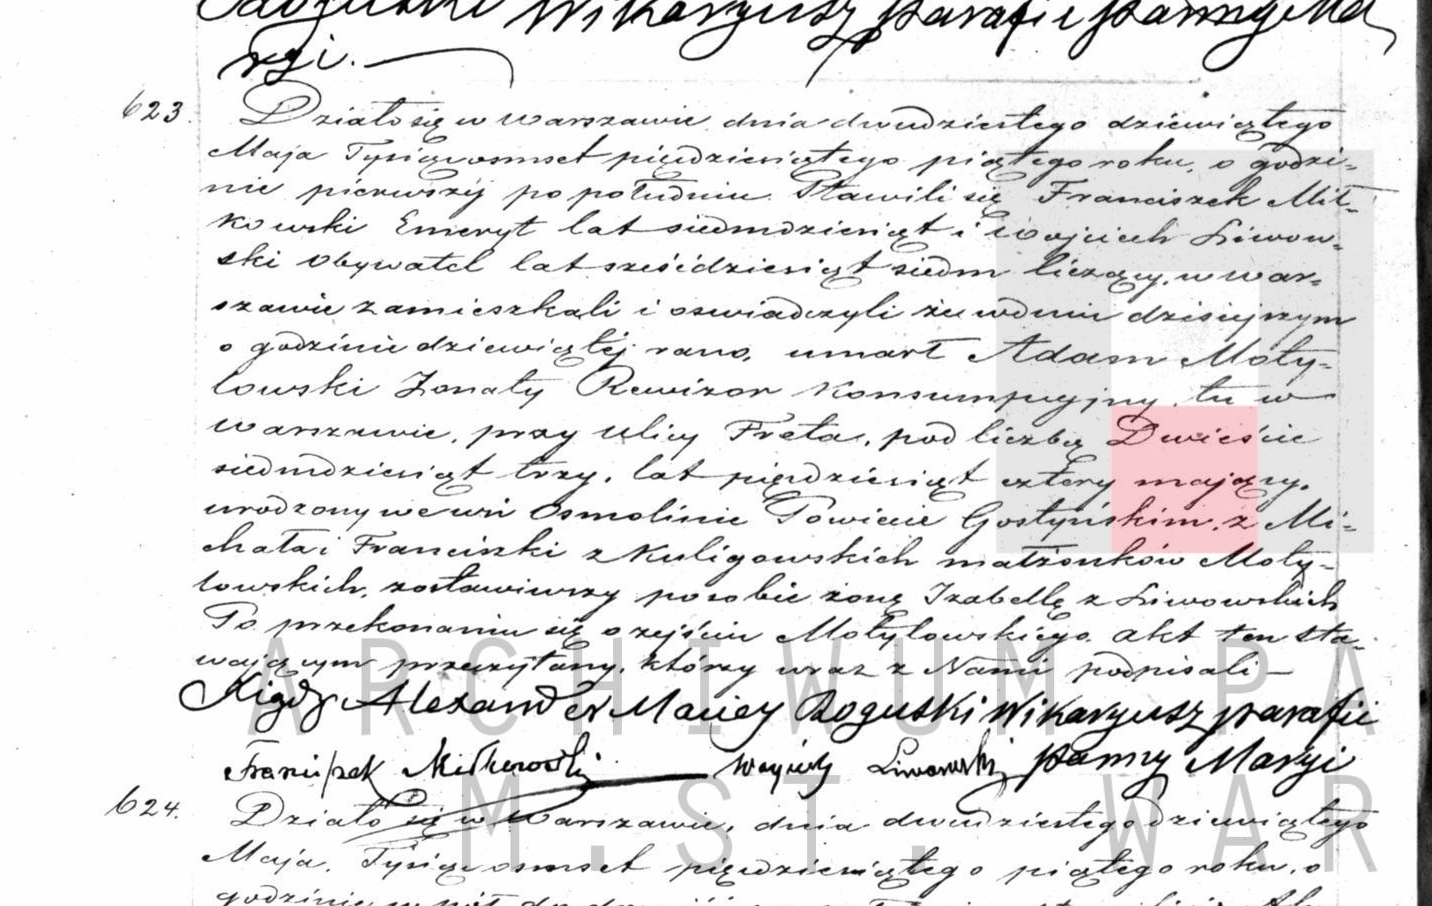 Wikaryusz parafii Panny Ma
ryi.
623. Działo się w Warszawie dnia dwudziestego dziewiątego
Maja Tysiąc osmset pięćdziesiątego piątego roku, o godzi-
nie pierwszy po południu. Stawili się Franciszek Mil-
kowski Emeryt lat siedmdziesiąt i Wojciech Liwow-
ski Obywatel lat sześćdziesiąt siedm liczący, w War-
szawie zamieszkali i oswiadczyli że w dniu dzisiejszym
o godzinie dziewiątej rano, umarł Adam Moty-
lowski Zonaty Rewizor Konsumpcyjny, tu w
Warszawie, przy ulicy Freta, pod liczbą Dwieście
siedmdziesiąt trzy, lat pięćdziesiąt cztery mający,
urodzony we wsi Osmolinie Powiecie Gostyńskim, z Mi-
chała i Franciszki z Kuligowskich małżonków Moty-
lowskich, zostawiwszy po sobie żonę Izabellę z Liwowskich
Po przekonaniu się o zejściu Motylowskiego, akt ten sta-
wającym przeczytany, którzy wraz z Nami podpisali
Xiądz Alexander Maciey Roguski Wikaryusz parafii
Franciszek Milkowski Woyciech Liwowski Panny Maryi
624. Działo się w Warszawie, dnia dwudziestego dziewiątego
Maja, Tysiąc osmset pięćdziesiątego piątego roku, o
godzinie
ARCHIWUM PA
M.ST.WAR